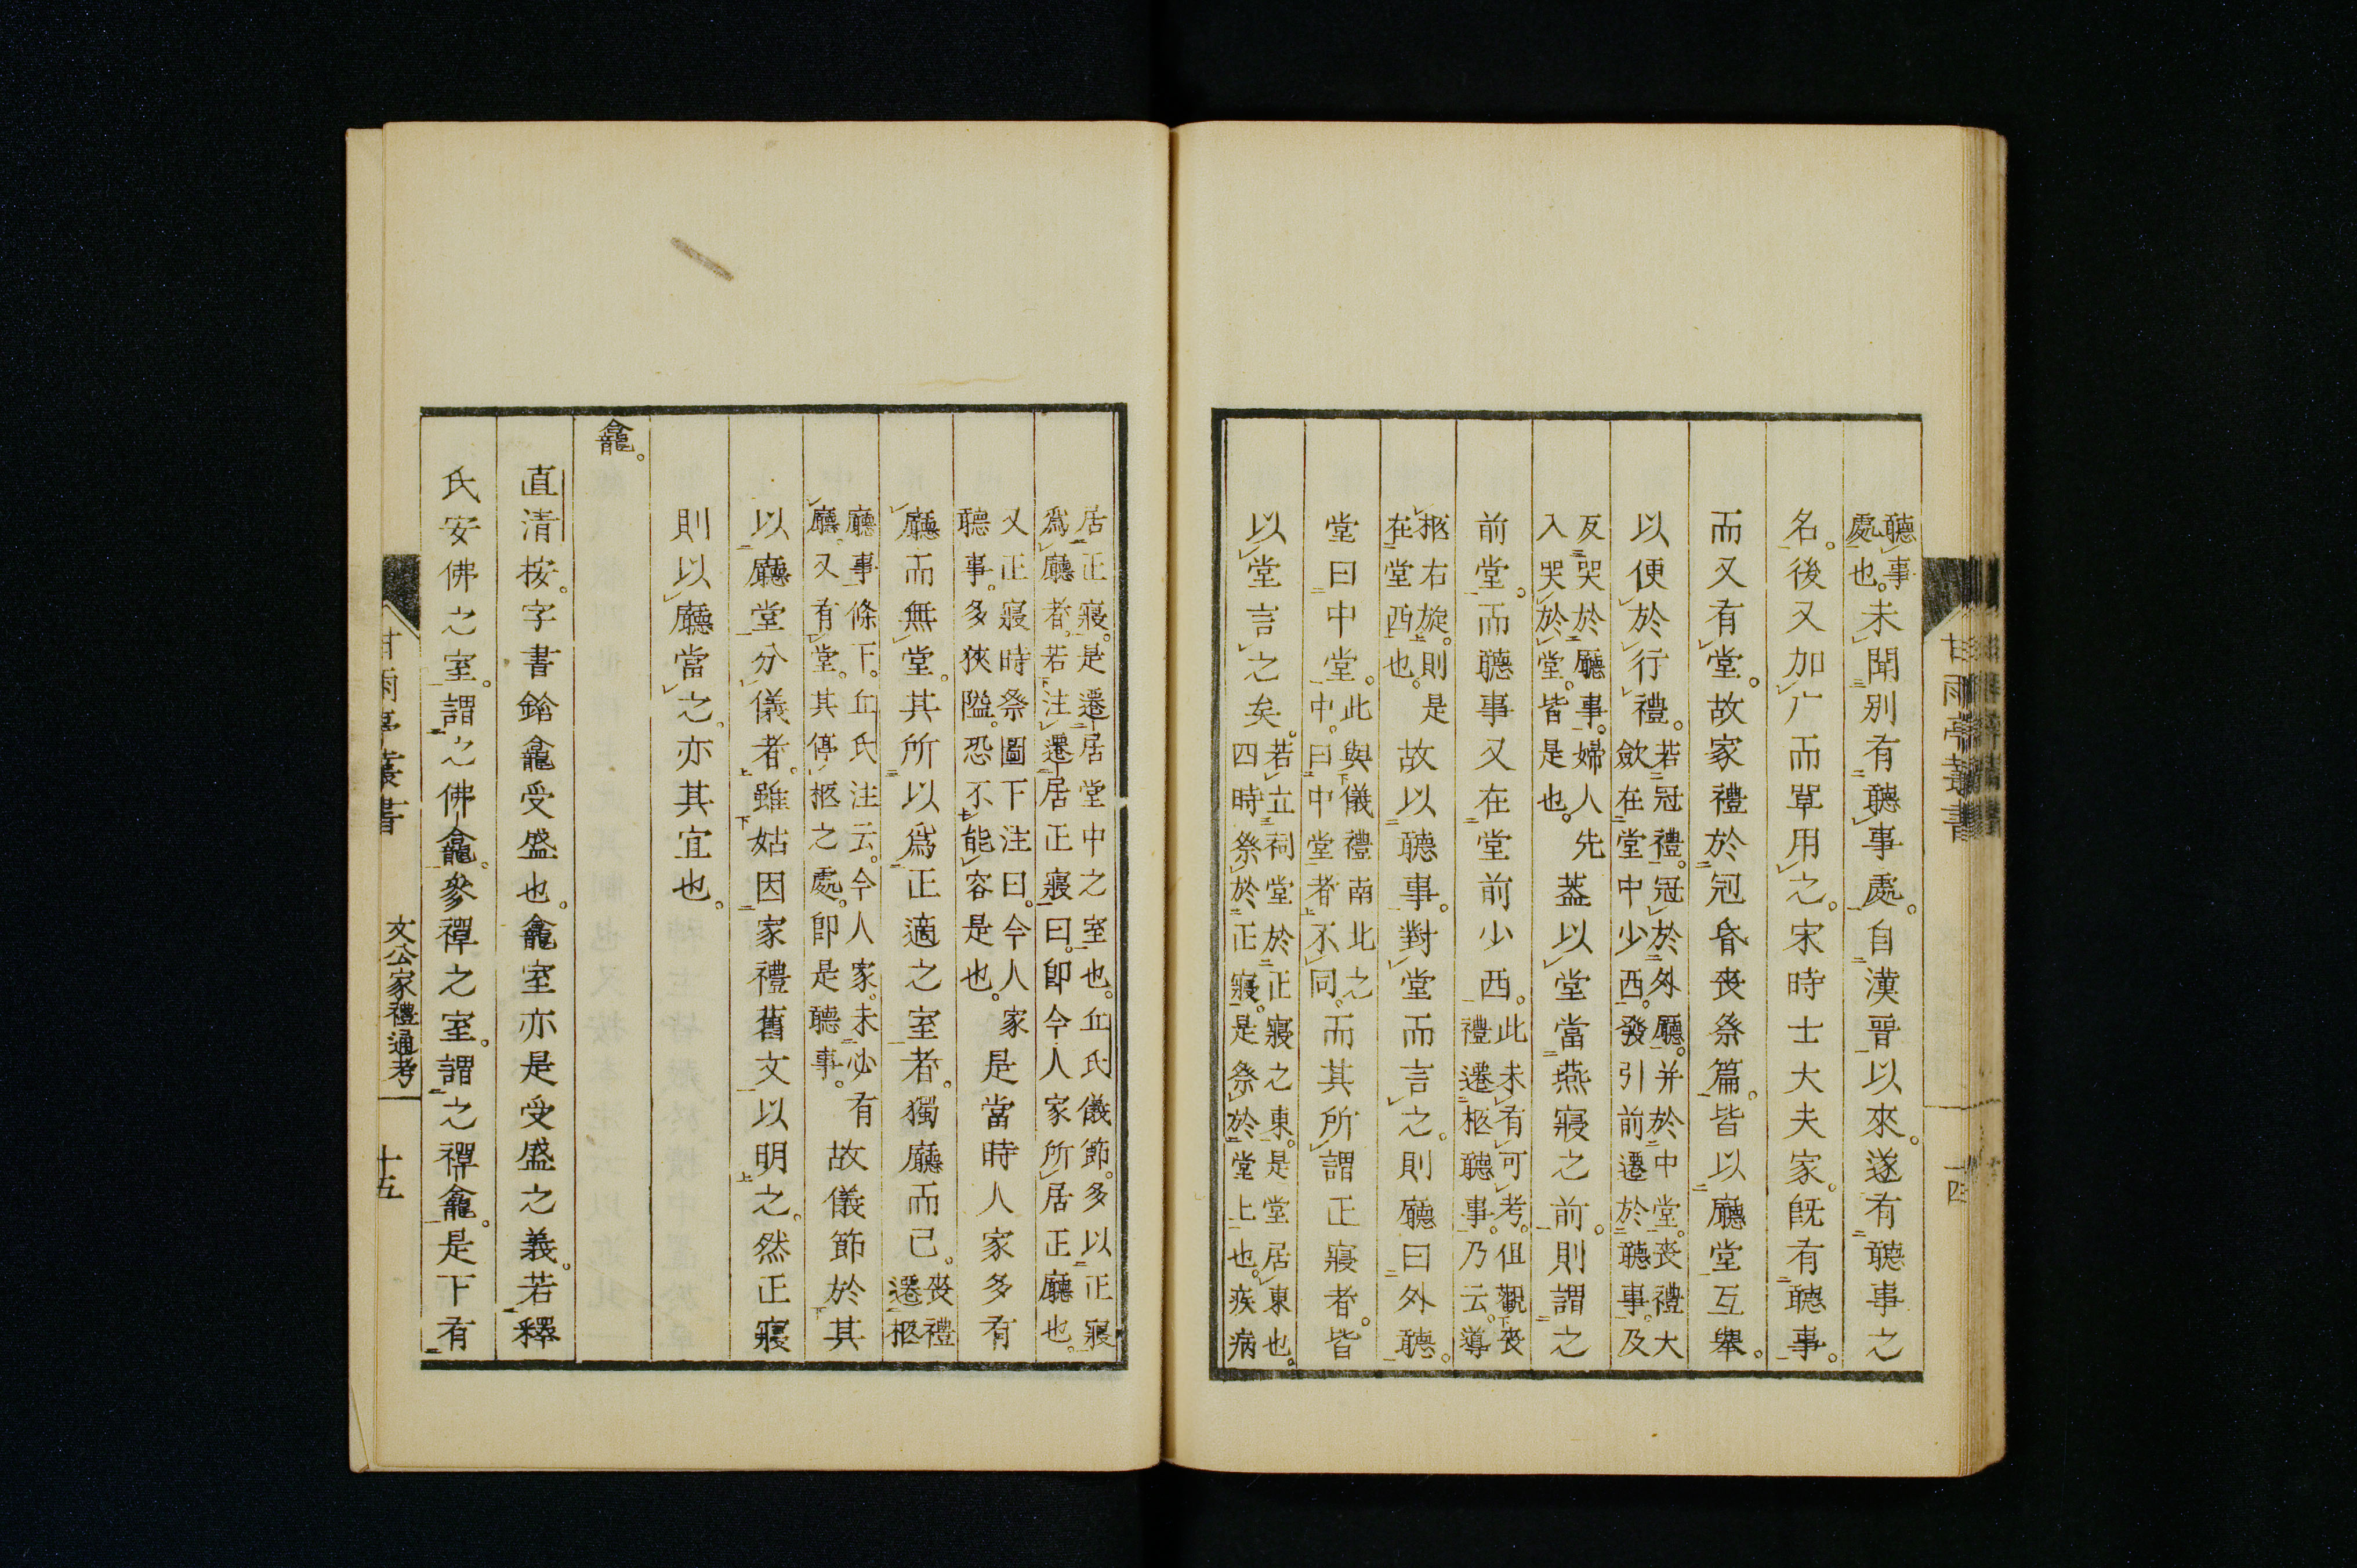 聽事處也。未聞別有聽事處。自漢晉以來。遂有聽事之
名。後又加广而單用之。宋時士大夫家。旣有聽事。
而又有堂。故家禮於冠昏喪祭篇。皆以廳堂互擧。
以便於行禮。若冠禮。冠於外廳。并於中堂。喪禮大斂在堂中少西。發引前遷於聽事。及
反哭於廳事。婦人先入哭於堂。皆是也。葢以堂當燕寢之前。則謂之
前堂。而聽事又在堂前少西。此未有可考。但觀喪禮遷柩聽事。乃云。導
柩右旋。則是在堂西也。故以聽事。對堂而言之。則廳曰外聽。
堂曰中堂。此與儀禮南北之中。曰中堂者不同。而其所謂正寢者。皆
以堂言之矣。若立祠堂於正寢之東。是堂居東也。四時祭於正寢。是祭於堂上也。疾病
甘雨亭叢書
十四
居正寢。是遷居堂中之室也。丘氏儀節。多以正寢爲廳者。若注遷居正寢曰。卽今人家所居正廳也。
又正寢時祭圖下注曰。今人家聽事。多狹隘。恐不能容是也。是當時人家多有
廳而無堂。其所以爲正適之室者。獨廳而已。喪禮遷柩
廳事條下。丘氏注云。今人家。未必有廳。又有堂。其停柩之處。卽是聽事。故儀節於其
以廳堂分儀者。雖姑因家禮舊文以明之。然正寢
則以廳當之。亦其宜也。
龕。
直清按。字書鎗龕受盛也。龕室亦是受盛之義。若釋
氏安佛之室。謂之佛龕。參禪之室。謂之禪龕。是下有
甘雨亭叢書
文公家禮通考
十五